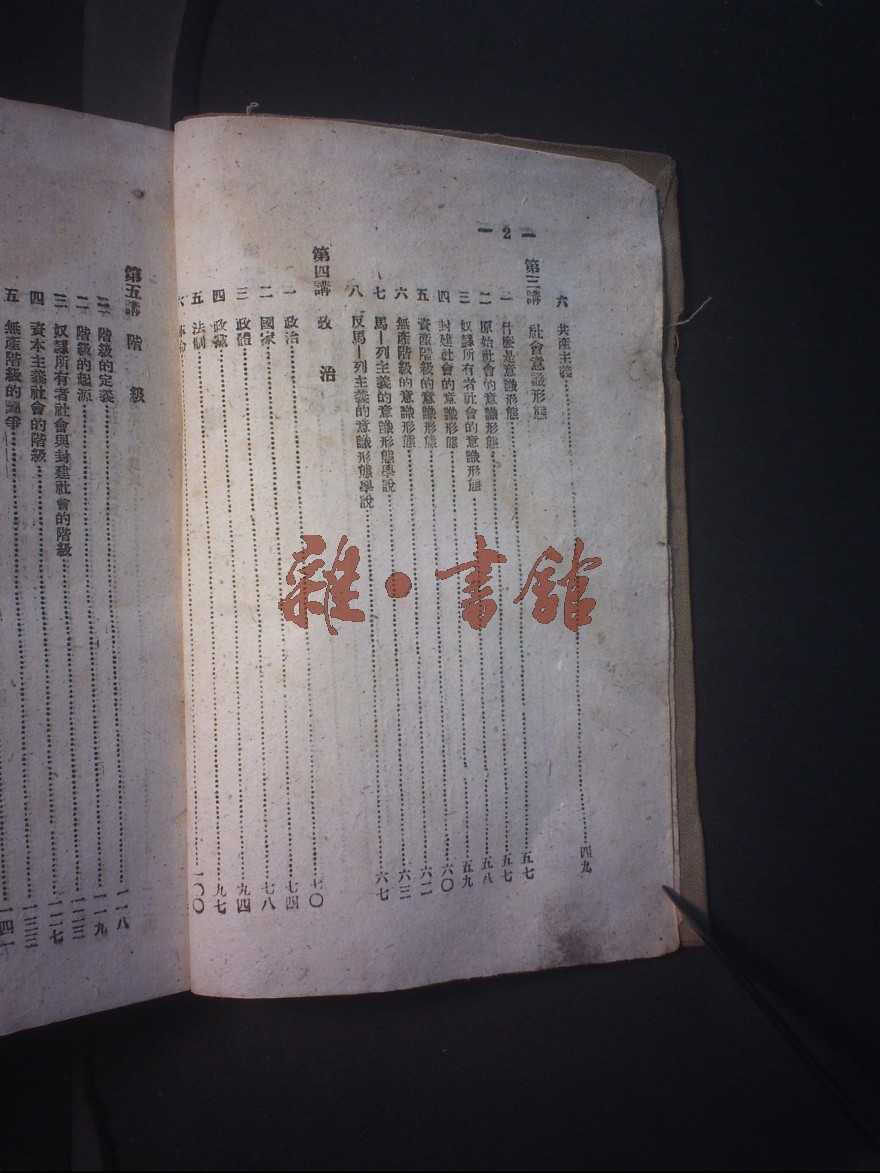 — 2 —
六 共產主義……四九
第三講 社會意識形態
一 什麼是意識形態……五七
二 原始社會的意識形態……五七
三 奴隸所有者社會的意識形態……五八
四 封建社會的意識形態……五九
五 資產階級的意識形態……六〇
六 無產階級的意識形態……六二
七 馬—列主義的意識形態學說……六三
八 反馬—列主義的意識形態學說……六七
第四講 政治
一 政治……七〇
二 國家……七四
三 政體……七八
四 政黨……九四
五 法制……九七
六 革命……一〇〇
第五講 階級
一 階級的定義……一一八
二 階級的起源……一一九
三 奴隸所有者社會與封建社會的階級……一二三
四 資本主義社會的階級……一二七
五 無產階級的鬭爭……一三三
一四一
雜·書館